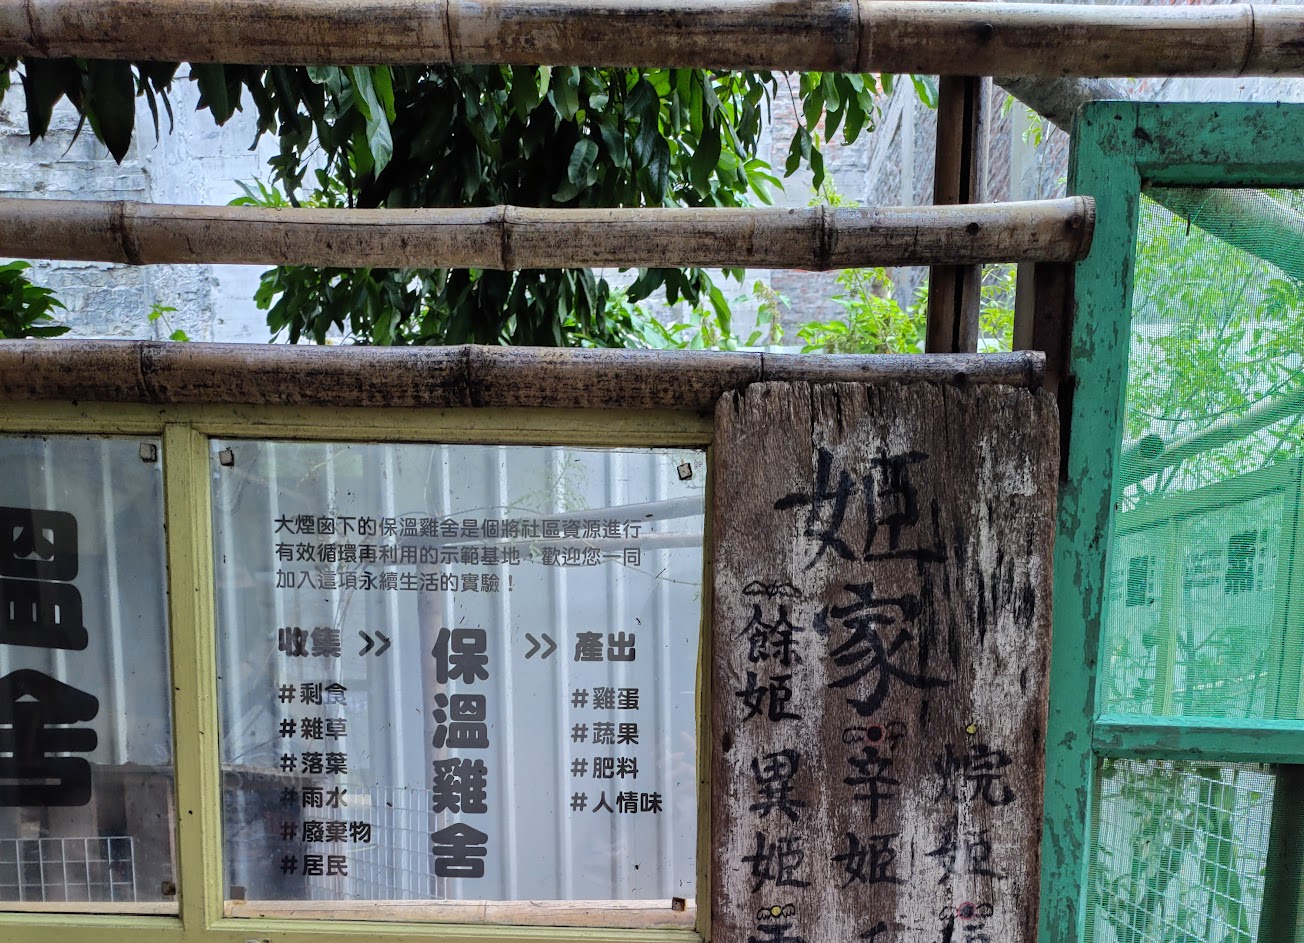 溫
舍
大煙囪下的保溫雞舍是個將社區資源進行
有效循環再利用的示範基地，歡迎您一同
加入這項永續生活的實驗！
收集 >> 保溫雞舍 >> 產出
#剩食
#雜草
#落葉
#雨水
#廢棄物
#居民
#雞蛋
#蔬果
#肥料
#人情味
姬家
烷姬
辛姬
餘姬
異姬